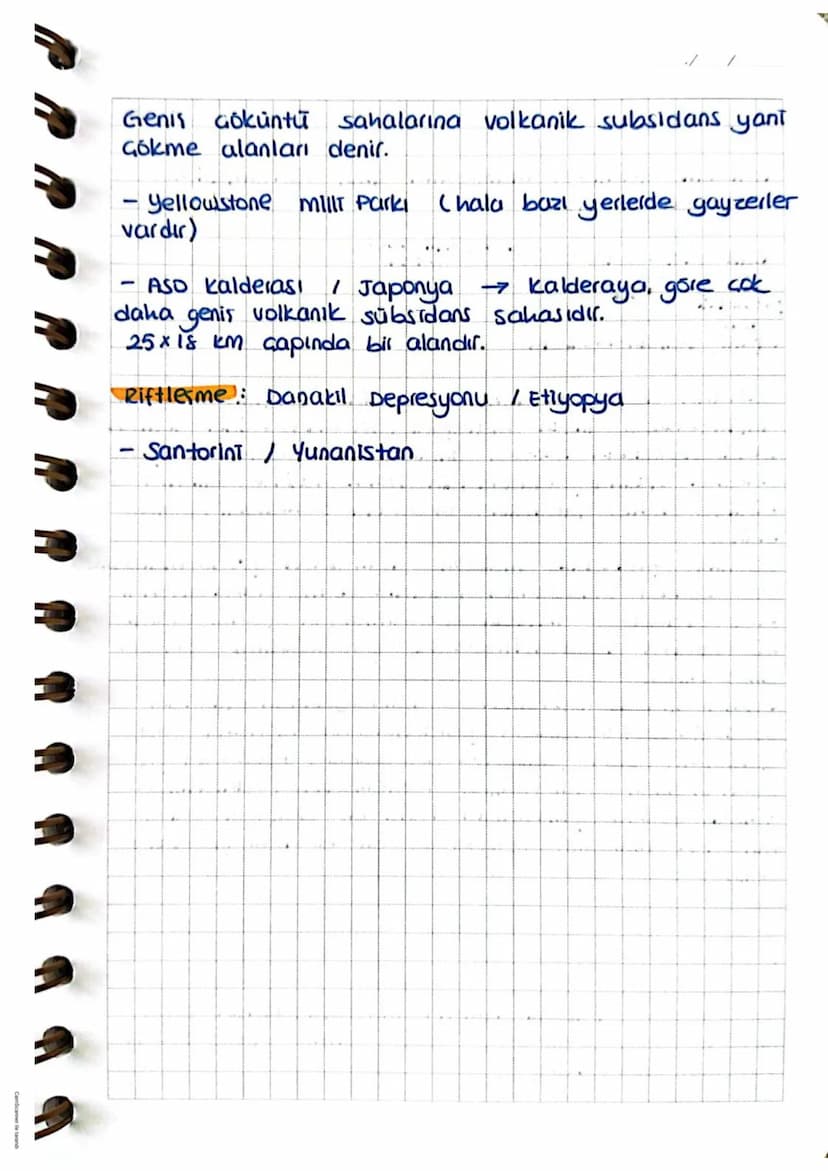 / /
Geniş çöküntü sahalarına volkanik subsidans yani
çökme alanları denir.
- Yellowstone milli Parkı (hala bazı yerlerde gayzerler
vardır)
- ASO Kalderası / Japonya → Kalderaya, göre çok
daha geniş volkanik sübsidans sahasıdır.
25 x 18 km çapında bir alandır.
Riftleşme : Danakil Depresyonu / Etiyopya
- Santorini / Yunanistan
CamScanner ile tarandı